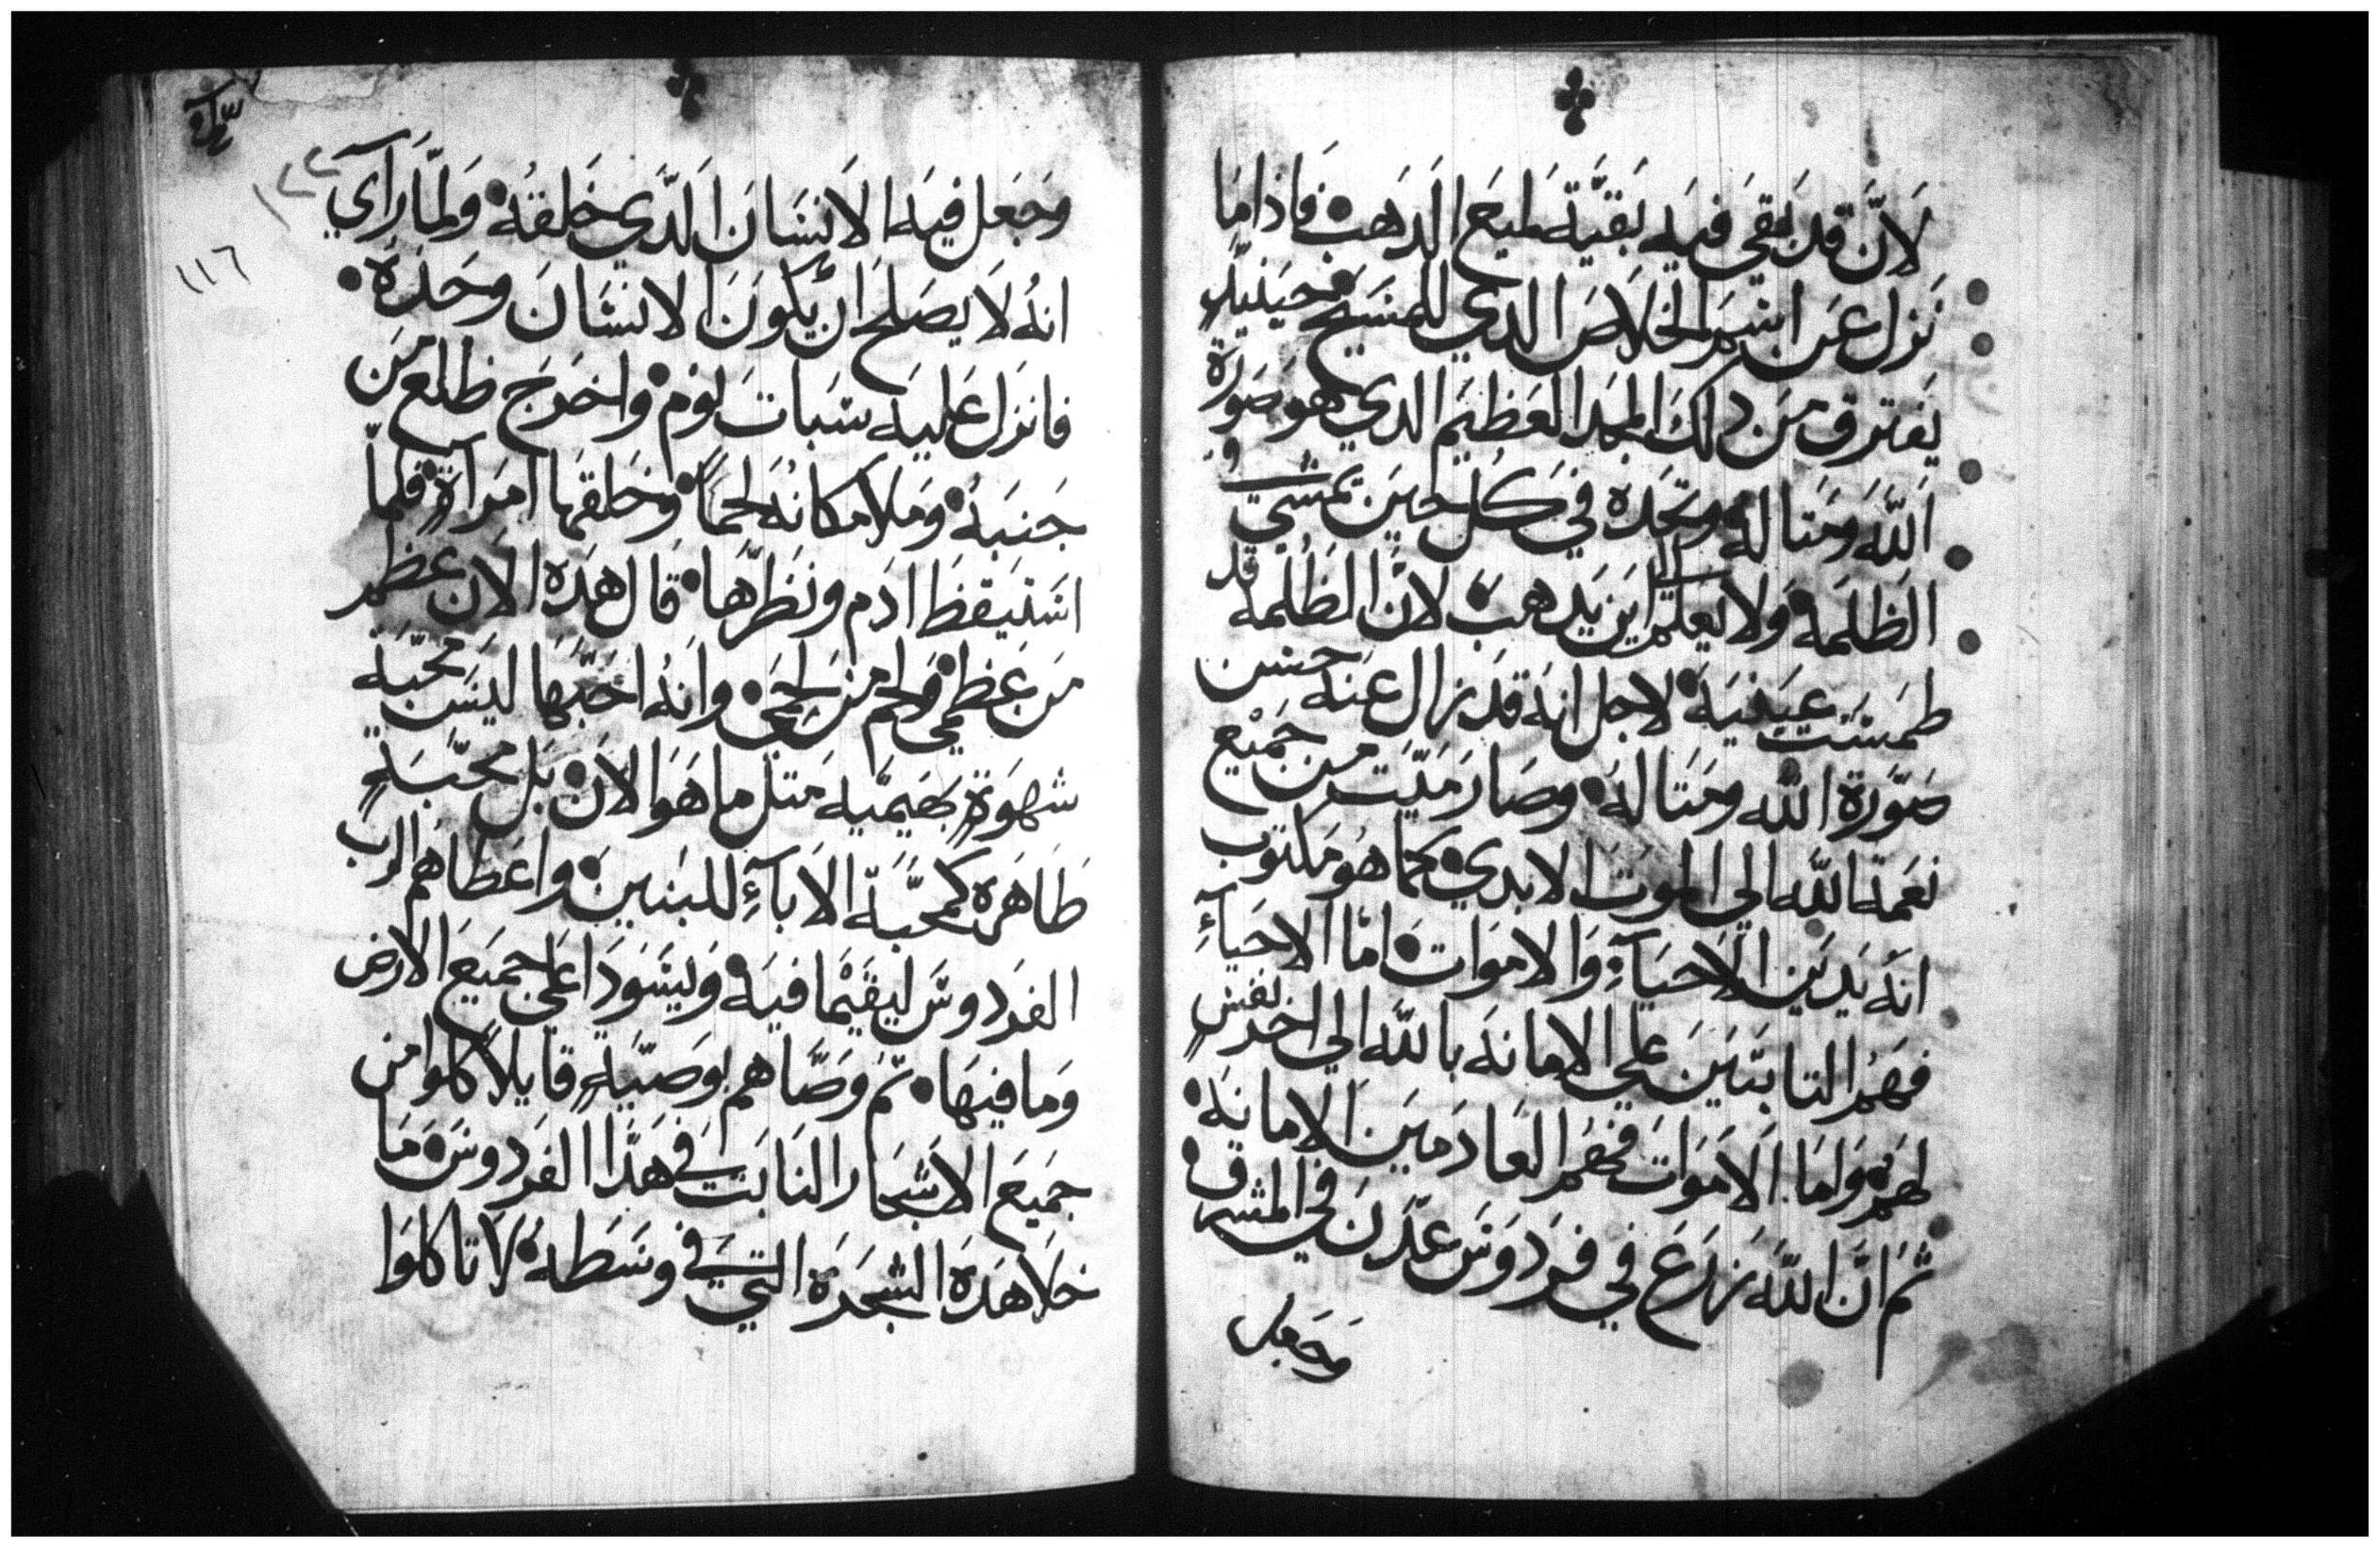 لان قد بقى فيه بقيّة طبع الدهب فاذا ما
نزل عن اسم الخلاص الدي للمسيح فحينيذٍ
يفترق من دلك المجد العظيم الدي هو صورة
الله ومتاله وتجده في كل حين يمشي في
الظلمه ولا يعلم اين يدهب لان الظلمه قد
طمست عينيه لاجل انه قد زال عنه حسن
صورة الله ومتاله وصار ميّت من جميع
نعمة الله الي الموت الابدي كما هو مكتوب
انه يدين الاحيآءِ والاموات امّا الاحيآءِ
فهم التابتين علي الامانه بالله الي اخر نفسٍ
لهم واما الاموات فهم العادمين الامانه
ثم انّ الله زرع في فردوس عدن في المشرق
وجعل
١١٦
وجعل فيه الانسان الدّي خلقه ولمّا رآي
انه لا يصلح ان يكون الانسان وحده
فانزل عليه سبات نوم واخرج ظلع من
جنبه وملا مكانه لحماً وخلقها امراةٍ فلمّا
استيقظ ادم ونظرها قال هده الان عظم
من عظمي ولحم من لحمي وانه احبّها ليس محبّة
شهوةٍ بهيميه متل ما هو الان بل محبّةٍ
طاهره كمحبّة الابآءِ للبنين واعطاهم الرب
الفردوس ليقيما فيه ويسودا على جميع الارض
وما فيها ثم وصّاهم بوصيّةٍ قايلاً كلوا من
جميع الاشجار النابت في هدا الفردوس ما
خلا هده الشجرة التي في وسطه لا تاكلوا